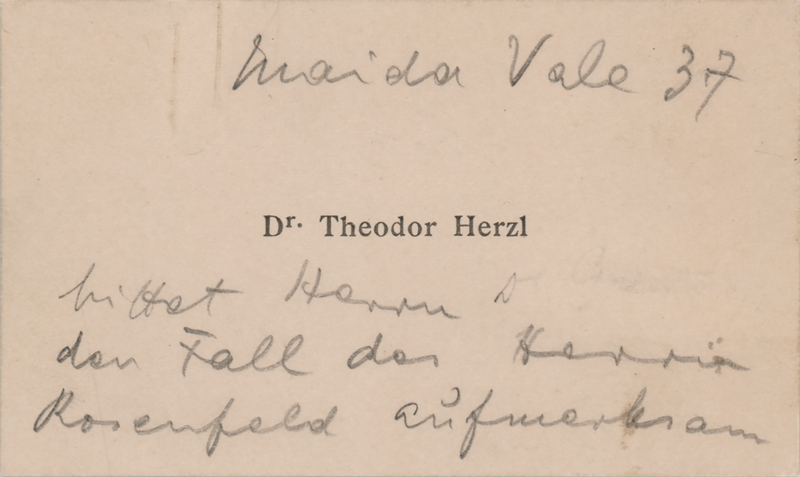 Maida Vale 37
Dr. Theodor Herzl
bittet Herrn D
den Fall des Herrn
Rosenfeld aufmerksam